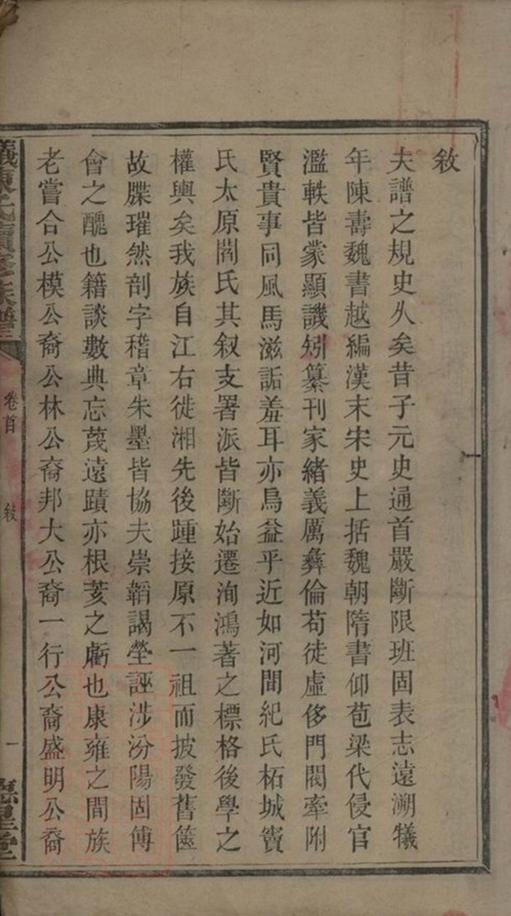 敘
夫譜之規史久矣昔子元史通首嚴斷限班固表志遠溯犧
年陳壽魏書越編漢末宋史上括魏朝隋書仰苞梁代侵官
濫軼皆蒙顯譏矧纂刊家緒義厲彝倫苟徒虛侈門閥牽附
賢貴事同風馬滋詬羞耳亦烏益乎近如河間紀氏柘城竇
氏太原閻氏其叙支署派皆斷始遷洵鴻著之標格後學之
權輿矣我族自江右徙湘先後踵接原不一祖而披發舊篋
故牒璀然剖字稽章朱墨皆協夫崇韜謁塋誣涉汾陽固傅
會之醜也籍談數典忘蔑遠蹟亦根荄之虧也康雍之間族
老嘗合公模公裔公林公裔邦大公裔一行公裔盛明公裔
陳氏續修族譜
卷首
敘
一
星堂